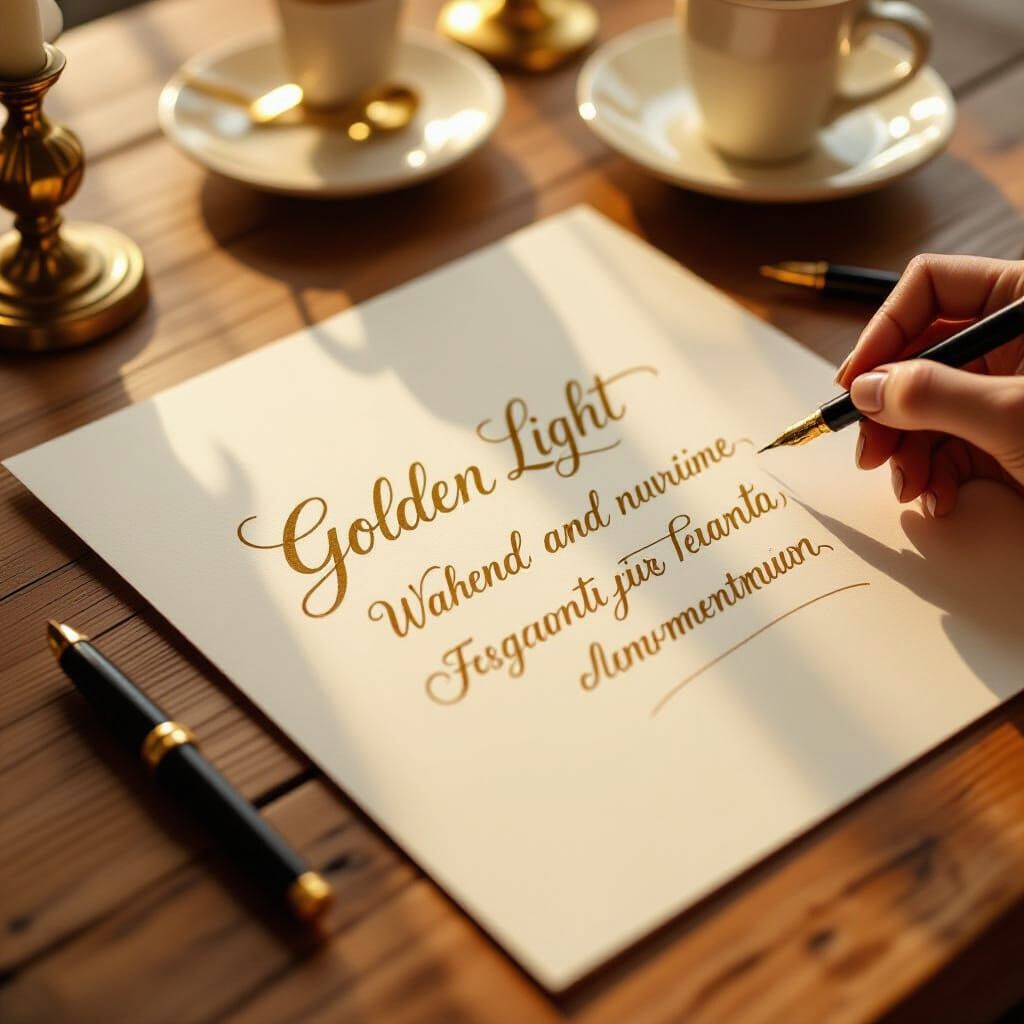 Golden Light
Wahend and nuvriime
Fesgaonti jiir Teranta,
Aunvmentmuon